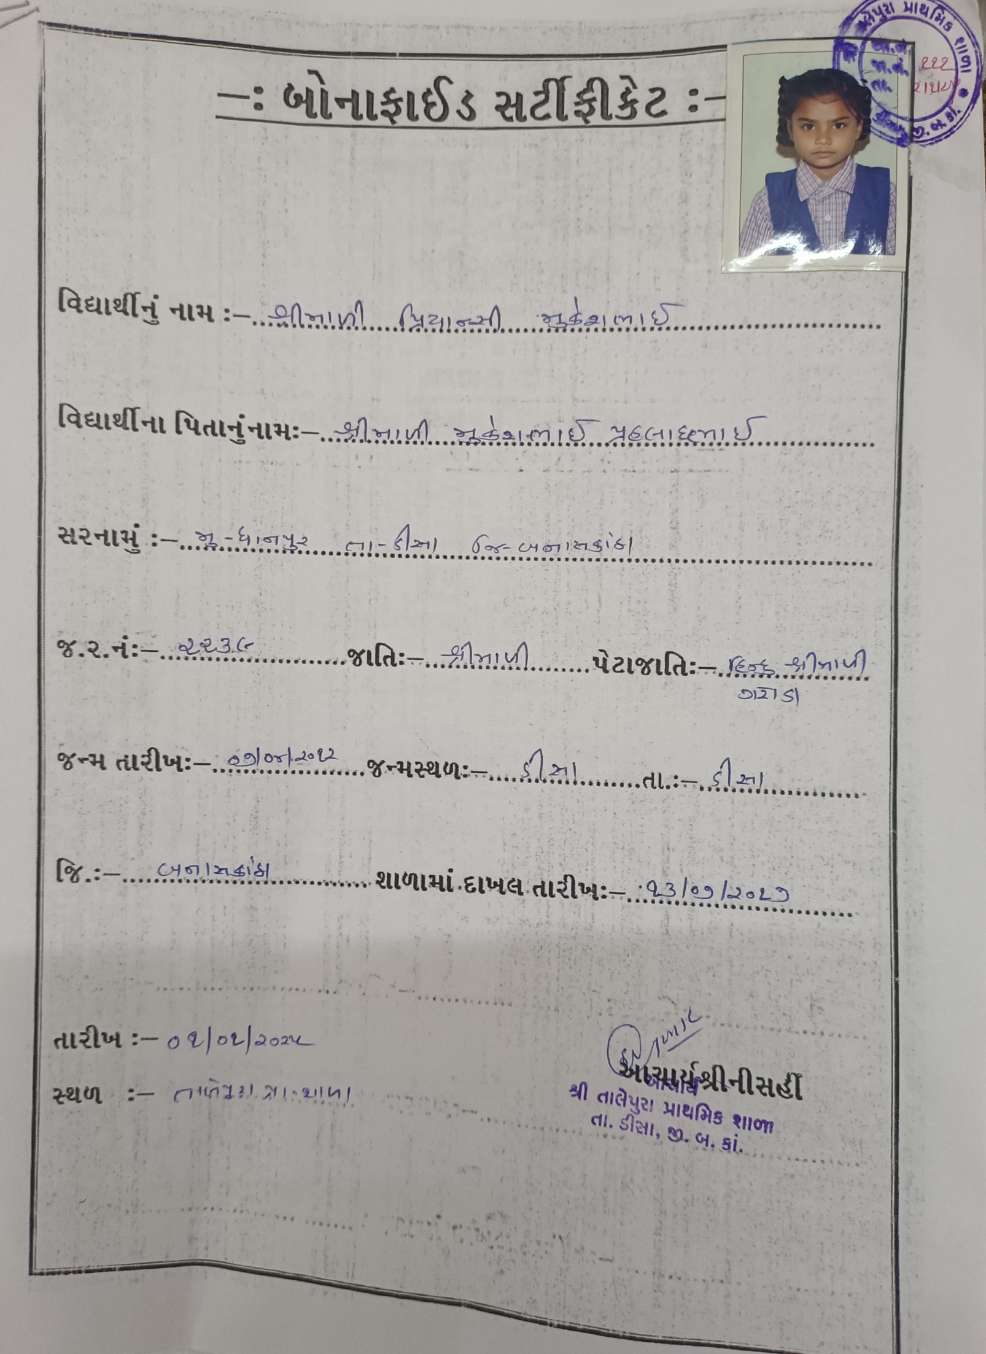 શ્રી તાલેપુરા પ્રાથમિક શાળા
-: બોનાફાઈડ સર્ટીફીકેટ :-
વિદ્યાર્થીનું નામ :- શ્રીમાળી પ્રિયાન્સી મુકેશભાઈ
વિદ્યાર્થીના પિતાનુંનામઃ- શ્રીમાળી મુકેશભાઈ પ્રહલાદભાઈ
સરનામું :- મુ-ધાનપુર તા-ડીસા જિ-બનાસકાંઠા
જ.ર.નંઃ- ૨૨૩૯ જાતિઃ- શ્રીમાળી પેટાજાતિઃ- હિન્દુ શ્રીમાળી
ગરોડા
જન્મ તારીખઃ- ૦૭/૦૪/૨૦૧૨ જન્મસ્થળઃ- ડીસા તા.:- ડીસા
જિ.:- બનાસકાંઠા શાળામાં દાખલ તારીખઃ- ૧૩/૦૭/૨૦૧૭
તારીખ :- ૦૧/૦૧/૨૦૨૫
સ્થળ :- તાલેપુરા પ્રા. શાળા
આચાર્યશ્રીનીસહીં
આચાર્ય
શ્રી તાલેપુરા પ્રાથમિક શાળા
તા. ડીસા, જી. બ. કાં.